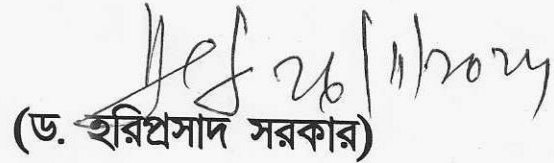 26/11/2024
(ড. হরিপ্রসাদ সরকার)